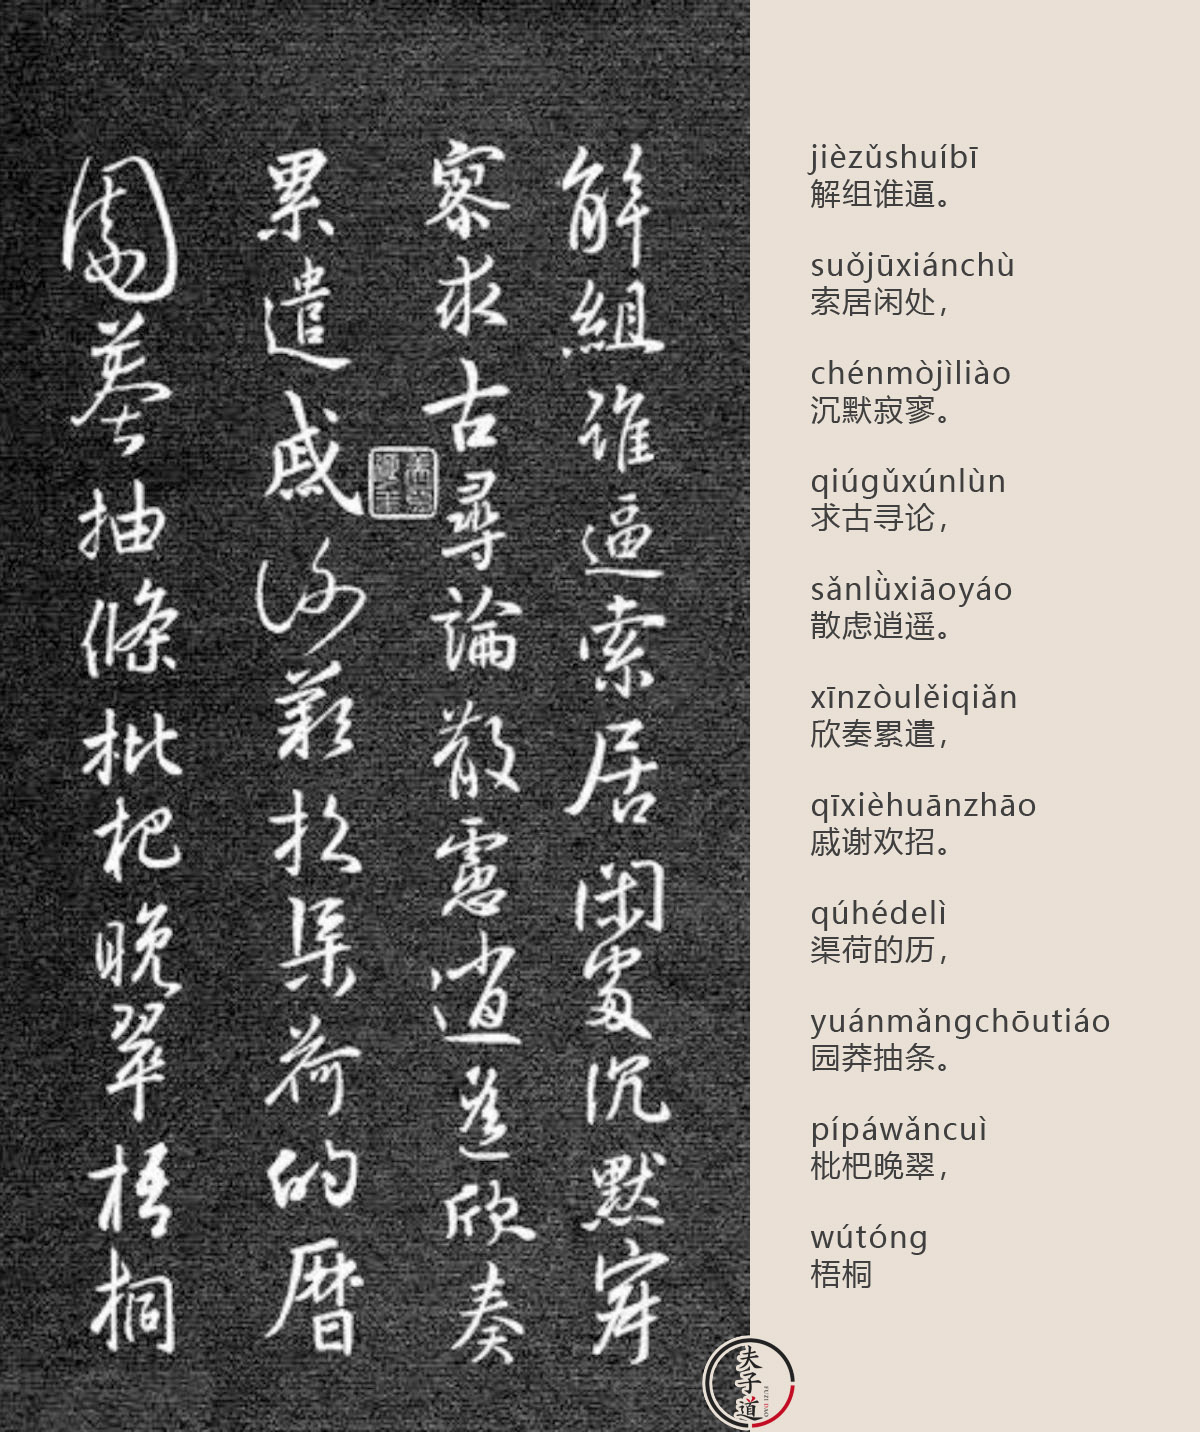 解組誰逼索居閑處沉默寂
寥求古尋論散慮逍遙欣奏
累遣慼謝歡招渠荷的曆
園莽抽條枇杷晚翠梧桐
jièzǔshuíbī
解组谁逼。
suǒjūxiánchù
索居闲处，
chénmòjìliào
沉默寂寥。
qiúgǔxúnlùn
求古寻论，
sǎnlǜxiāoyáo
散虑逍遥。
xīnzòulěiqiǎn
欣奏累遣，
qīxièhuānzhāo
戚谢欢招。
qúhédelì
渠荷的历，
yuánmǎngchōutiáo
园莽抽条。
pípáwǎncuì
枇杷晚翠，
wútóng
梧桐
夫子道
FUZI DAO